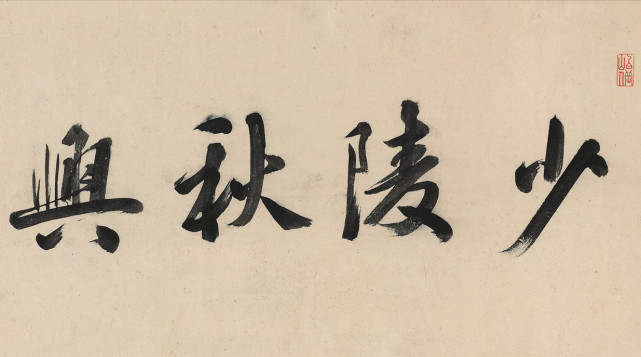 少陵秋興